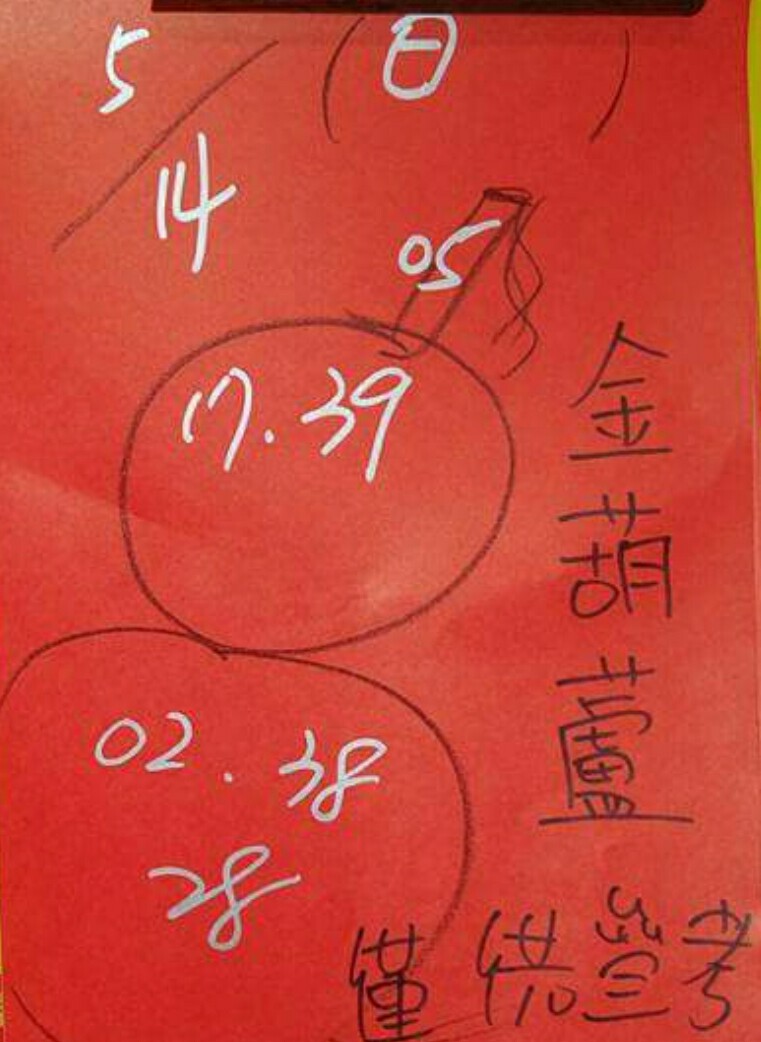 5/14 (日)
05
17.39
02.38
28
金葫蘆
僅供參考